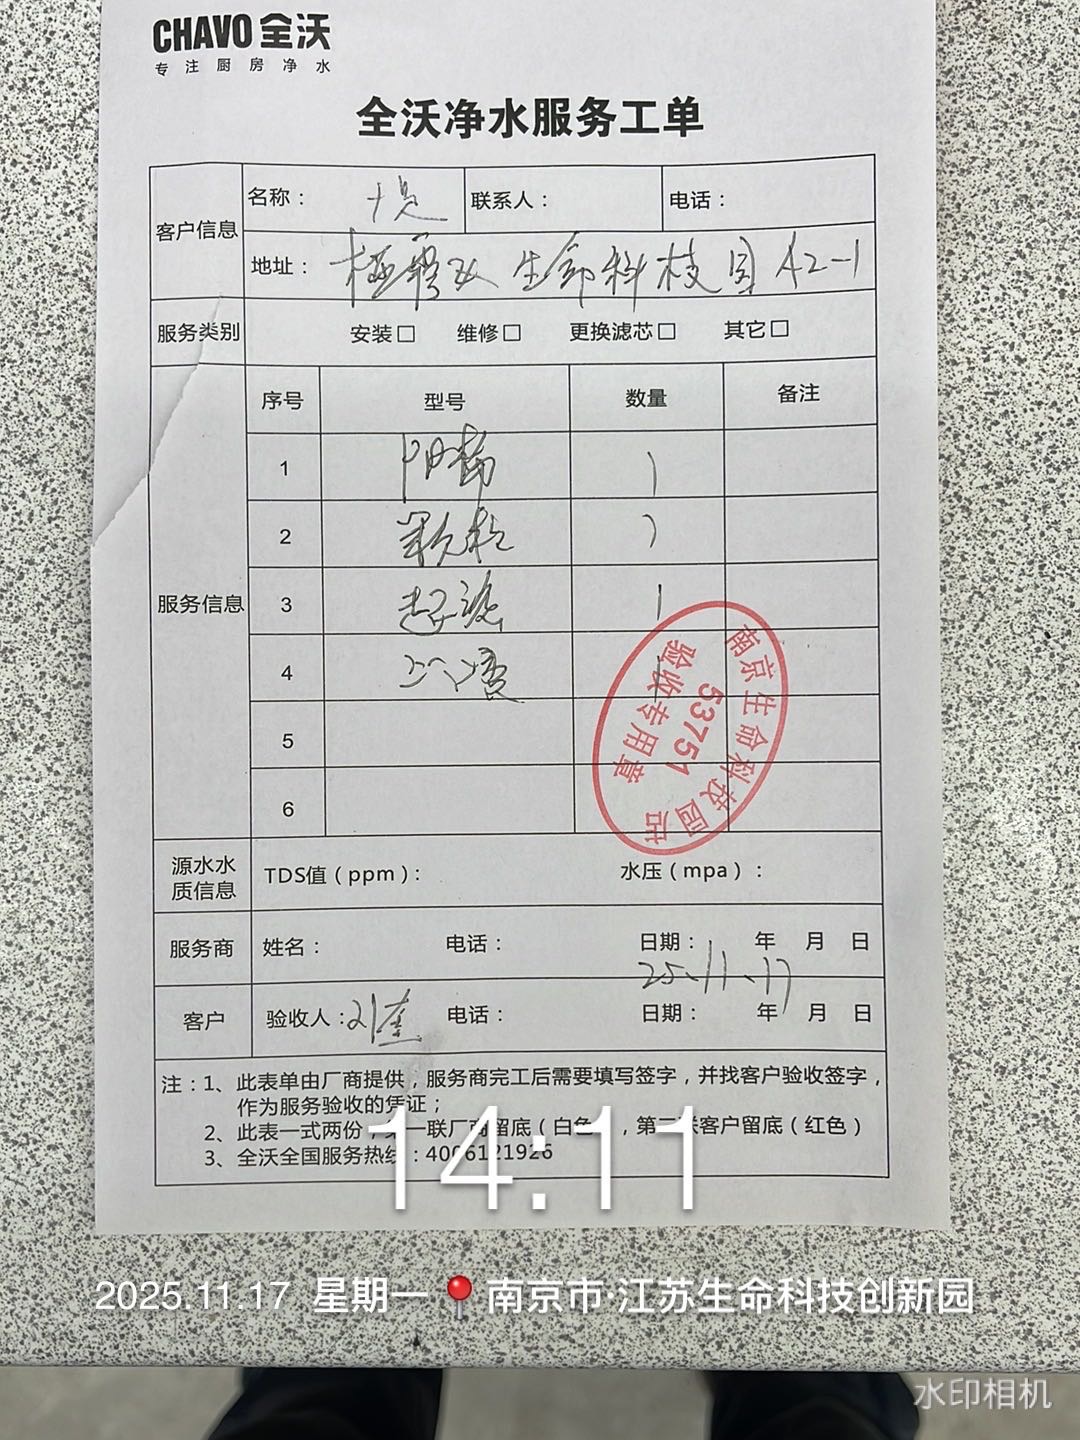 CHAVO 全沃
专注厨房净水
全沃净水服务工单
客户信息 名称： 联系人： 电话：
地址： 生命科技园 A2-1
服务类别 安装□ 维修□ 更换滤芯□ 其它□
服务信息
序号 型号 数量 备注
1 阻垢 1
2 颗粒 1
3 超滤 1
4
5
6
南京生命科技园店
53751
验收专用章
源水水质信息 TDS值（ppm）： 水压（mpa）：
服务商 姓名： 电话： 日期： 年 月 日
25.11.17
客户 验收人：刘奎 电话： 日期： 年 月 日
注：1、此表单由厂商提供，服务商完工后需要填写签字，并找客户验收签字，
作为服务验收的凭证；
2、此表一式两份，第一联厂商留底（白色），第二联客户留底（红色）
3、全沃全国服务热线：4006121926
14:11
2025.11.17 星期一 南京市·江苏生命科技创新园
水印相机